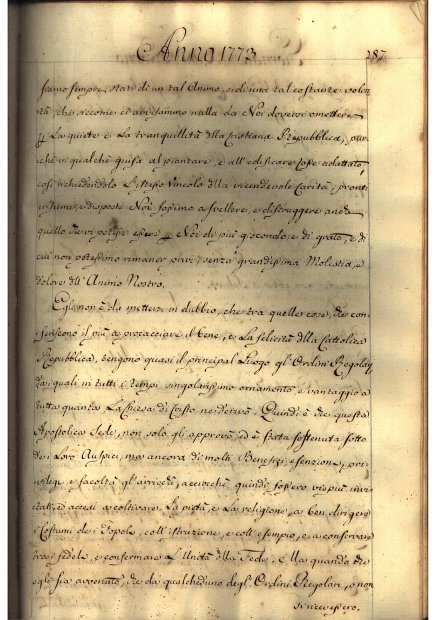 Anno 1773 287
siamo sempre stati di un tal Animo, e di una tal costante volon
tà, che siccome ci avvisammo nulla da Noi doversi omettere
p La quiete e La tranquillità dlla Cristiana Repubblica, pur
chè in qualche guisa al piantare, e all'edificare fosse adattato
così richiedendolo L'istesso Vincolo dlla vicendevole Carità; pronti
insieme, e disposti Noi fossimo a svellere, e distruggere anche
quello che vi potesse essere p Noi di più giocondo, e di grato, e di
cui non potessimo rimaner privi, senza grandissima Molestia, e
dolore dll' Animo Nostro.
Egli non è da mettersi in dubbio, che tra quelle cose, che con
feriscono il più a procacciare il bene, e La felicità dlla Cattolica
Repubblica, tengono quasi il principal Luogo gl'Ordini Regolari
dai quali in tutti i tempi singolarissimo ornamento, e vantaggio a
tutta quanta La Chiesa di Cristo ne derivò. Quindi è che questa
Apostolica Sede, non solo gli approvò, ed à stata sostenuta sotto
de i Loro Auspici, ma ancora di molti Benefizi, esenzioni, pri
vilege, e facoltà gli arricchì, acciocchè quindi fossero vie più invi
tati, ed accesi a coltivare La pietà, e La religione, a ben dirigere
i Costumi de i Popoli, coll'istruzione, e coll'esempio, e a conservare
tra i fedeli, e confermare L'Unità dlla Fede. Ma quando che
egli sia avvenuto, che da qualcheduno degl'Ordini Regolari, o non
si ricevessero